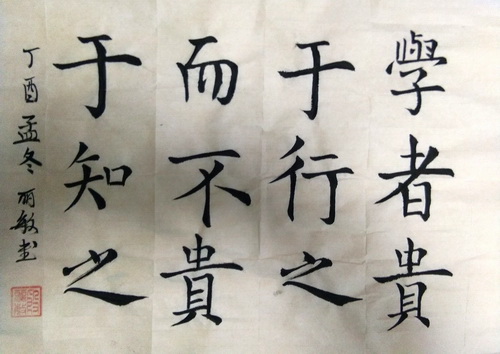 學者貴
于行之
而不貴
于知之
丁酉孟冬丽敏书